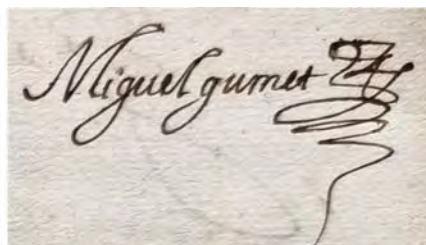 Miguel gumet